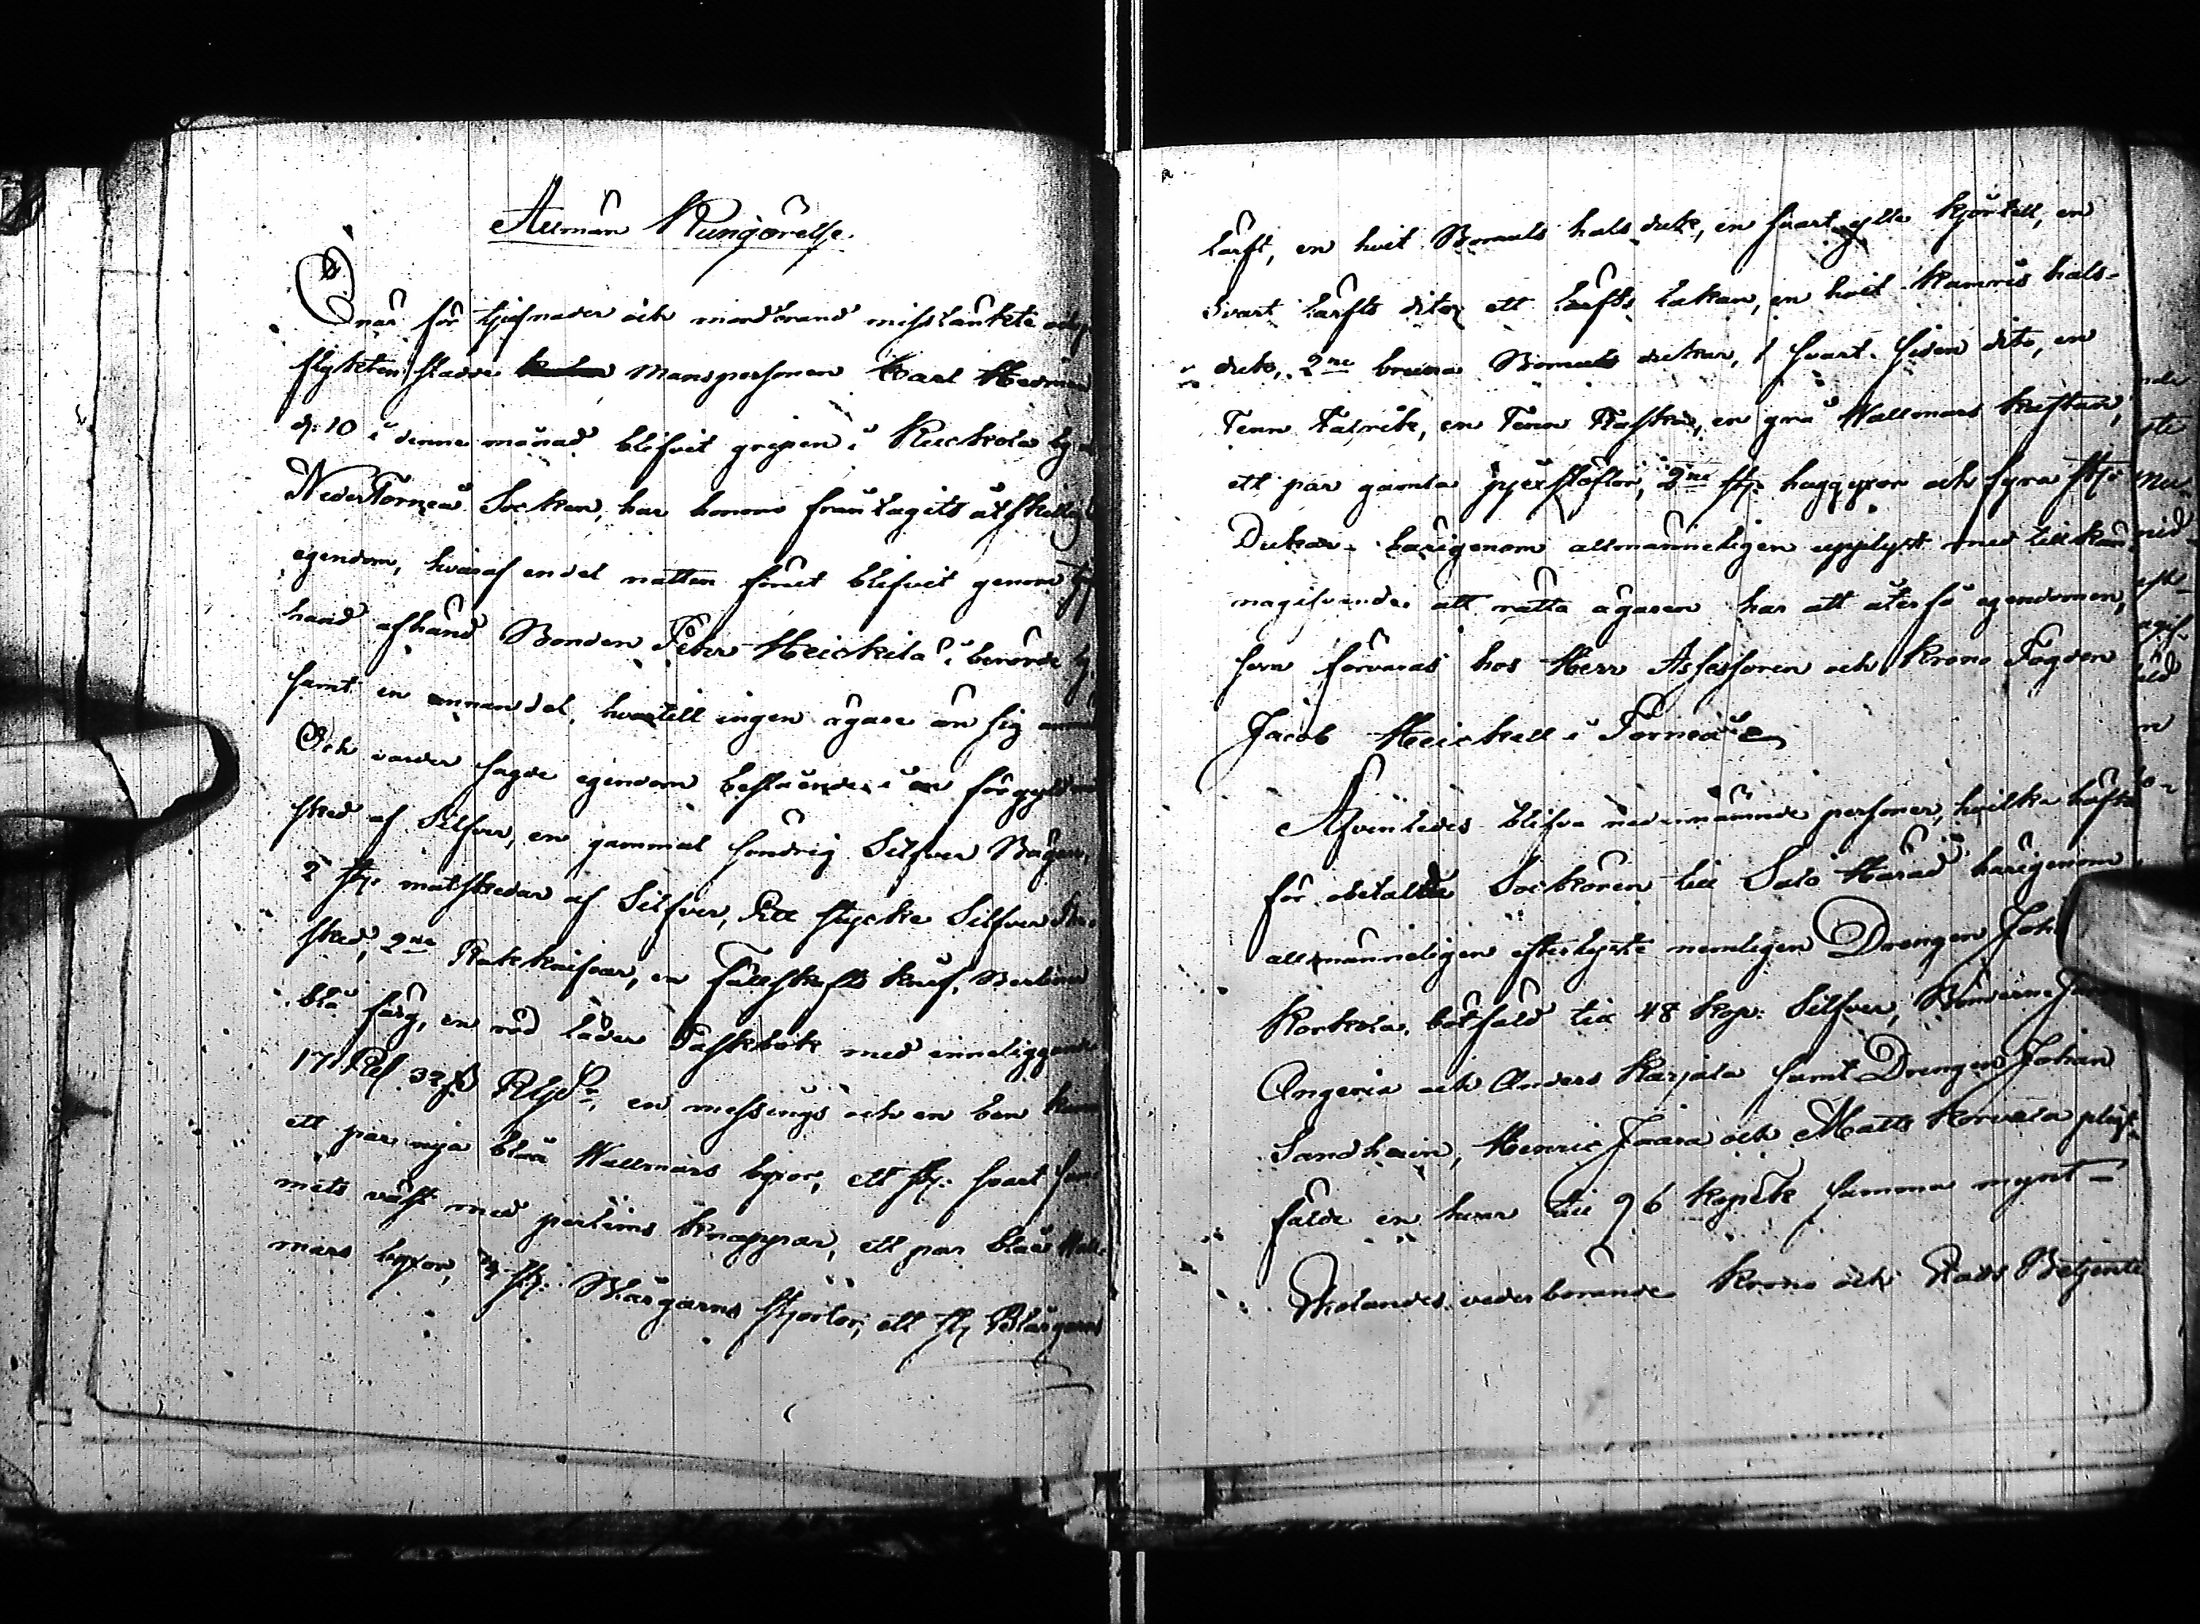 Allmän Kungörelse.
Enär för tjufnader och mordbrand misstänkte och på
flykten stadde Manspersonen Carl Hedman
d. 10 i denne månad blifvit gripen i Ruckola by
NederTorneå Socken, har honom fråntagits åtskillig
egendom, hvaraf en del natten förut blifvit genom
hand afhänd Bonden Pehr Heickilä i berörde by
samt en annan del, hvartill ingen ägare än sig
Och varder sagde egendom bestående i en förgyld
sked af Silfver, en gammal söndrig Silfver Bägare,
2 st. matskedar af Silfver, Ett stycke Silfver
sked, 2ne Rakknifvar, en fällskafts knif, Berliner
blå färg, en röd läder Taskbok med inneliggande
17 Rd. 32 s. Rgs, en messings och en ben kam
ett par nya blåa Wallmars byxor, ett st. svart
mets väst med perlems knappar, ett par blåa
mars byxor, st. Blårgarns skjortor, ett st. Blårgarns
lärft, en hvit Bomuls halsduk, en svart ylle kjortell, en
svart lärfts dito, ett lärfts lakan, en hvit kamris hals-
duk, 2ne bruna Bomuls dukar, 1 svart siden dito, en
Tenn Talrik, en Tenn Flaska, en grå Wallmars kaftan,
ett par gamla stöflor, 2ne st. huggyxor och fyra st.
Dukar härigenom allmänneligen upplyst med tillkän-
nagifvande att rätta ägaren har att återfå egendomen,
som förvaras hos Herr Assessoren och Krono Fogden
Jacob Heickell i Torneå
Äfvenledes blifva nedannämnde personer, hvilka häfta
för obetalte Sacköron till Salo Härad härigenom
allmänneligen efterlyste nemligen Drengen Joh
Korkola, bötfäld till 48 kop. Silfver, Bönderne
Angeria och Anders Karjala samt Drengen Johan
Sandhain, Henric Jaara och Matts Korvala plikt-
fälde en hvar till 96 kopek samma mynt –
Åliggandes vederbörande Krono och Stads Betjente